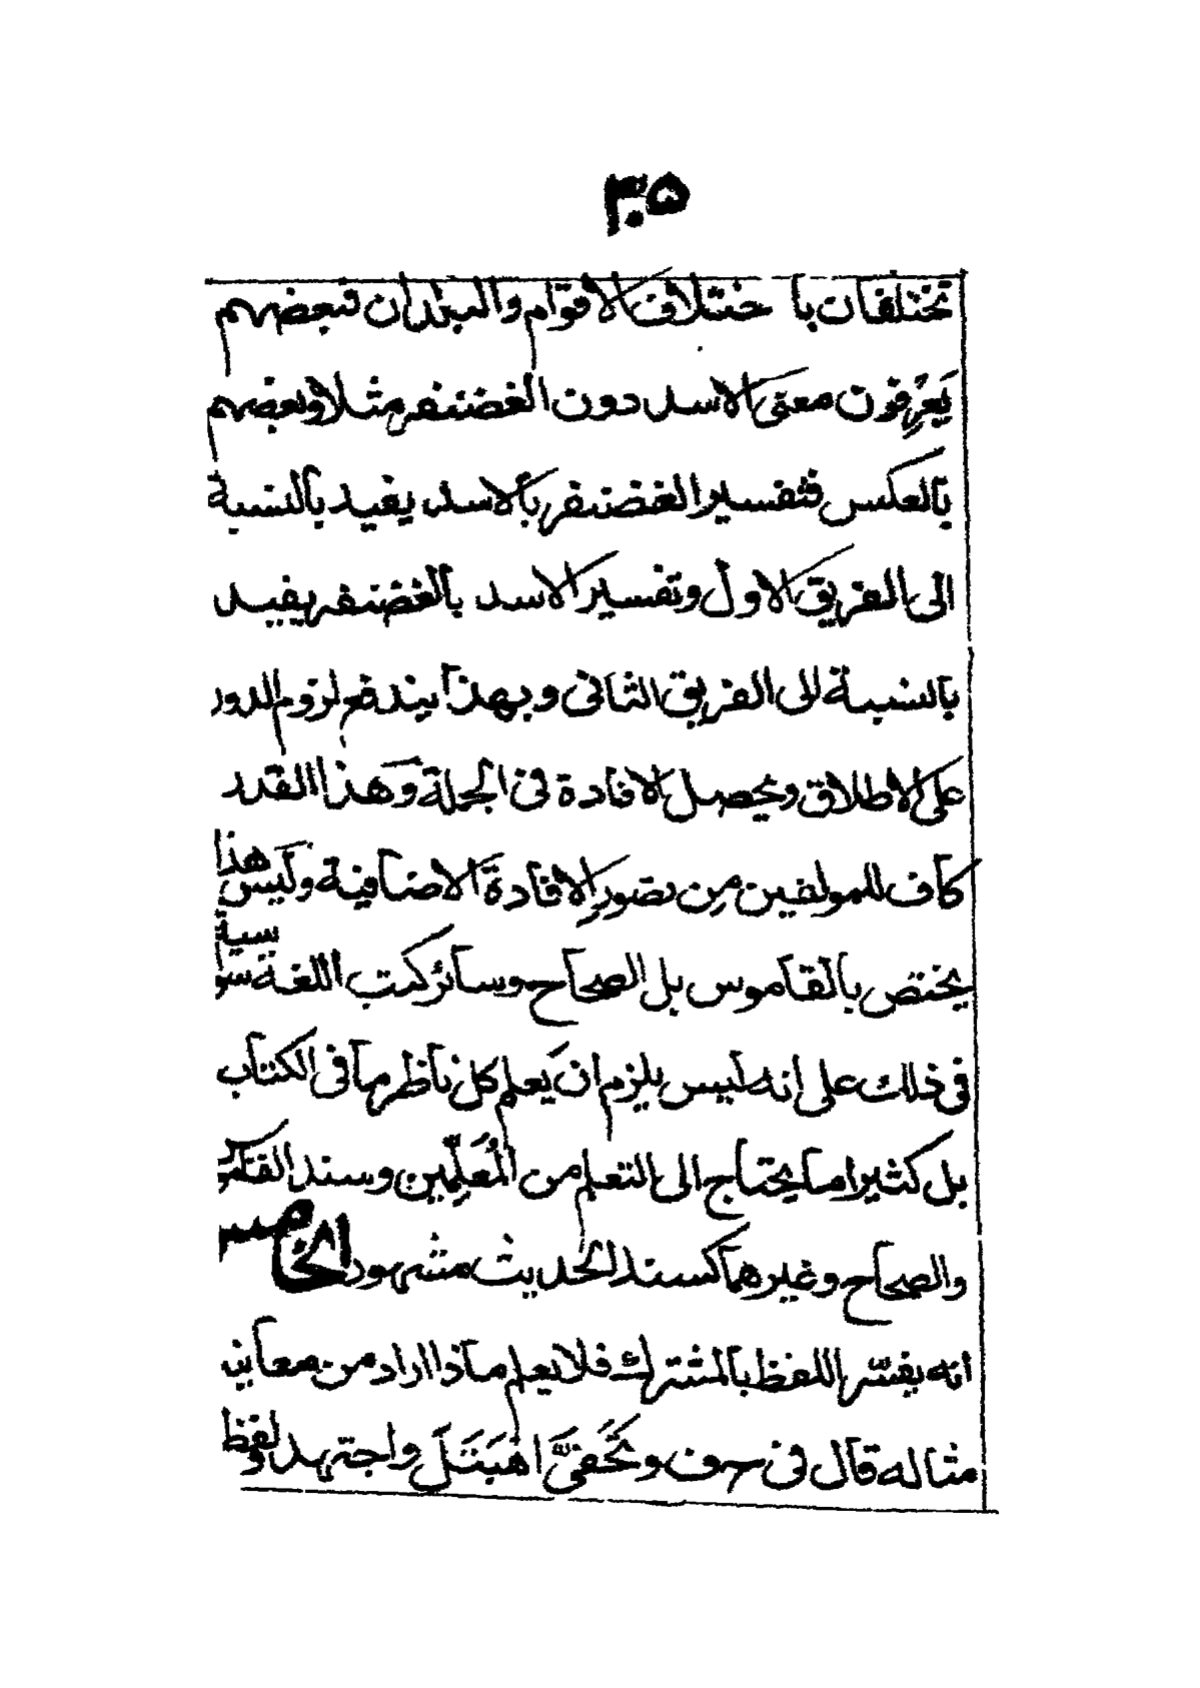 ٣٠٥
تختلفان با ختلاف الاقوام والبلدان فبعضهم
يَعْرِفون معنى الاسد دون الغضنفر مثلا وبعضهم
بالعكس فتفسير الغضنفر بالاسد يفيد بالنسبة
الى الفريق الاول وتفسير الاسد بالغضنفر يفيد
بالنسبة الى الفريق الثانى وبهذا يندفع لزوم الدور
على الاطلاق ويحصل الافادة فى الجملة وهذا القدر
كاف للمولفين من تصور الافادة الاضافية وليس هذا
يختص بالقاموس بل الصحاح وسائر كتب اللغة سواسية
فى ذلك على انه ليس يلزم ان يعلم كل ناظر ما فى الكتاب
بل كثيرا ما يحتاج الى التعلم من المُعَلِّمين وسند القاموس
والصحاح وغيرهما كسند الحديث مشهور الخامس
انه يفسّر اللفظ بالمشترك فلا يعلم ماذا اراد من معانيه
مثاله قال فى حرف وتَحَفىَّ اهْتَبَلَ واجتهد ولفظ